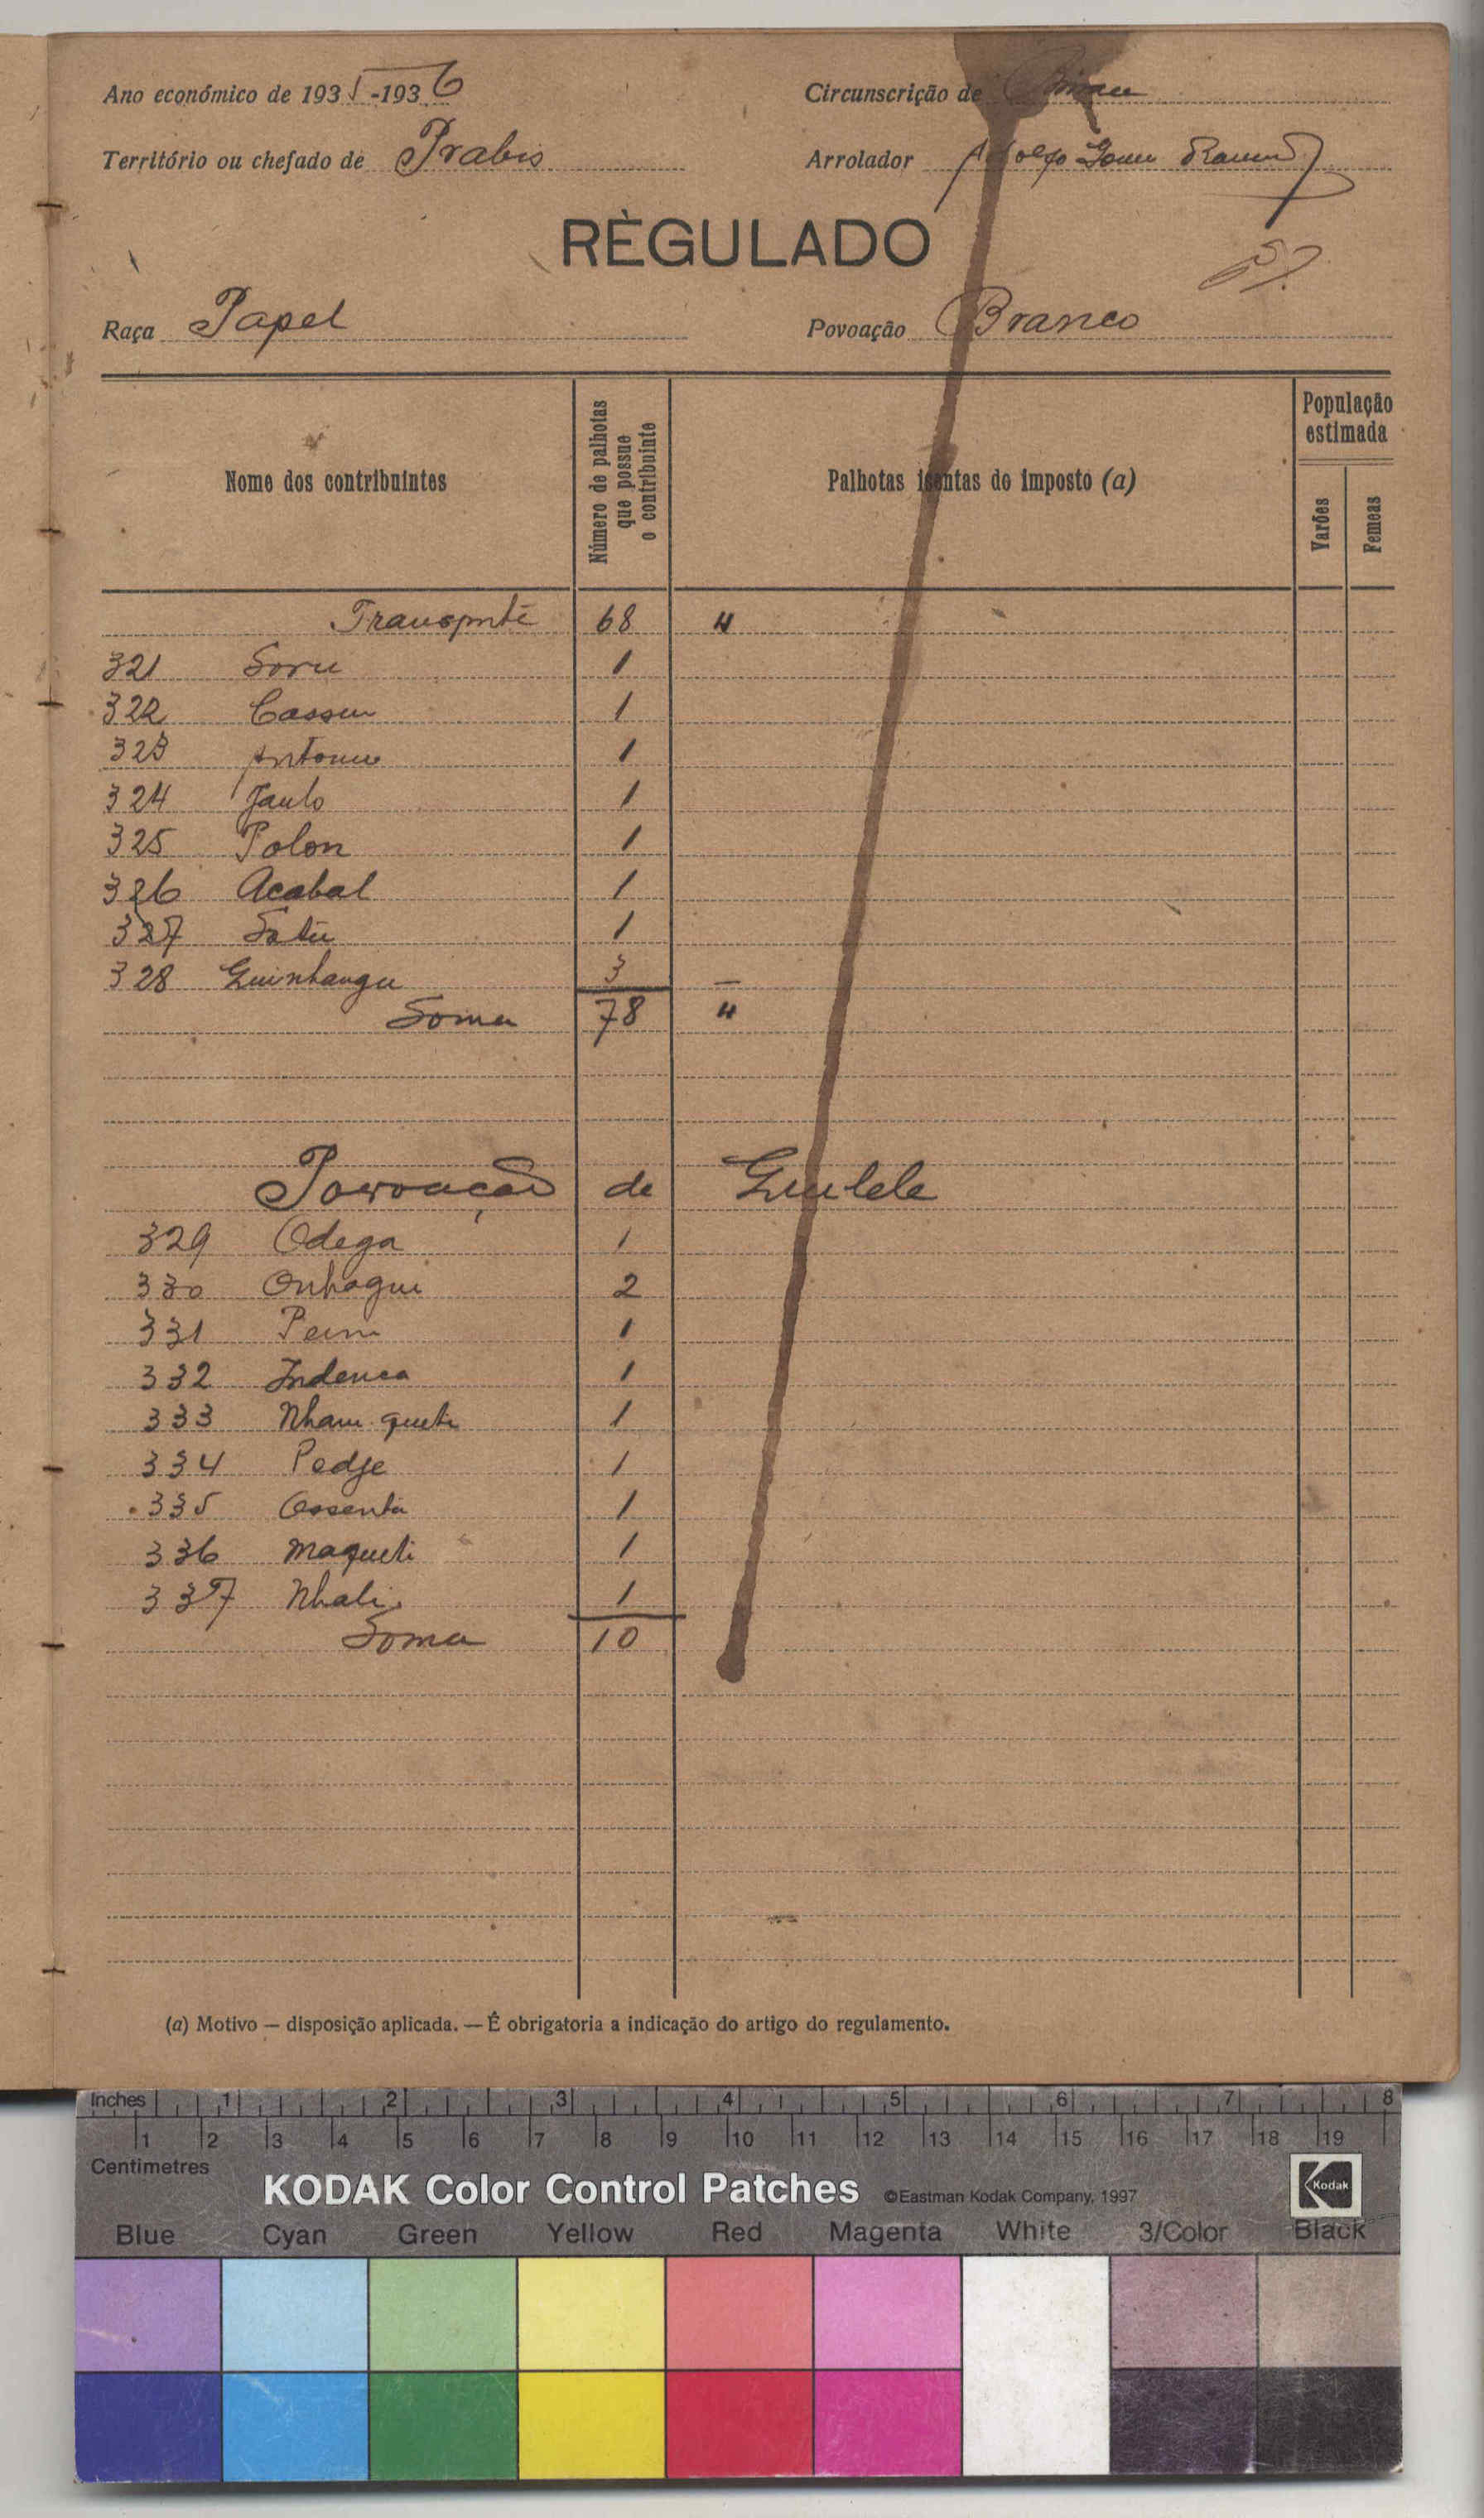 Ano económico de 1935-1936
Circunscrição de Bissau
Território ou chefado de Prabis
Arrolador Adolfo Gomes Ramos
RÈGULADO
Raça Papel
Povoação Branco
Nome dos contribuintes
Número de palhotas que possue o contribuinte
Palhotas isentas do imposto (a)
População estimada
Varões
Femeas
Transporte 68 4
321 Soru 1
322 Cassu 1
323 Antonio 1
324 Paulo 1
325 Polon 1
326 Acabal 1
327 Satu 1
328 Guinhangu 3
Soma 78 4
Povoação de Guilele
329 Odega 1
330 Onhagui 2
331 1
332 Indenca 1
333 Nham queti 1
334 Pedje 1
335 Ossenta 1
336 Maqueti 1
337 Nhali 1
Soma 10
(a) Motivo — disposição aplicada. — É obrigatoria a indicação do artigo do regulamento.
Inches 1 2 3 4 5 6 7 8
1 2 3 4 5 6 7 8 9 10 11 12 13 14 15 16 17 18 19
Centimetres
KODAK Color Control Patches ©Eastman Kodak Company, 1997 Kodak
Blue Cyan Green Yellow Red Magenta White 3/Color Black